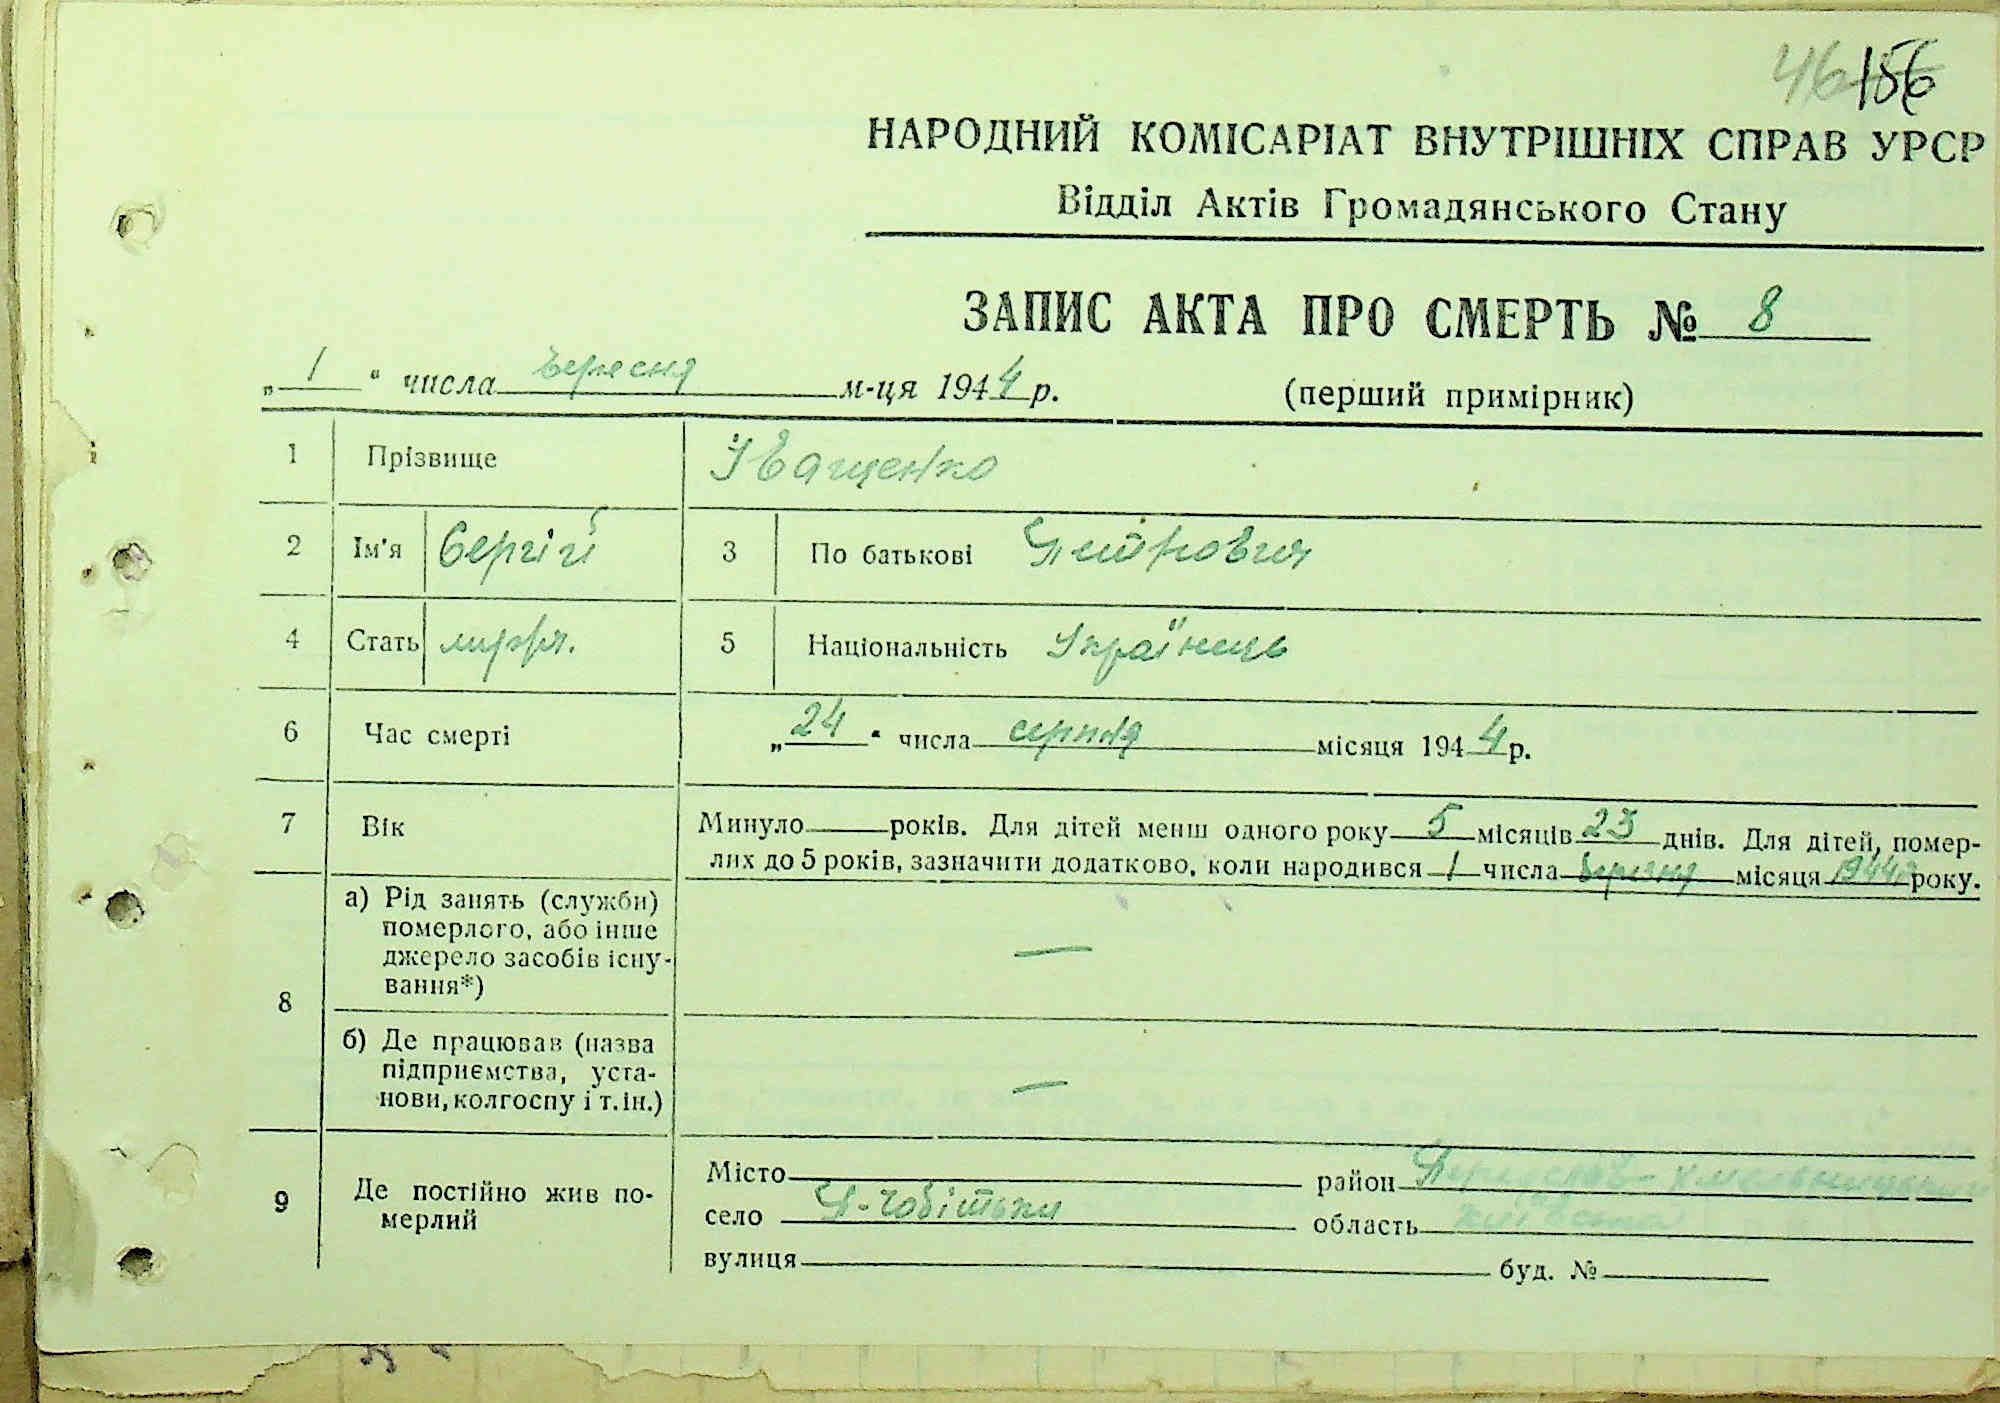 46 156
НАРОДНИЙ КОМІСАРІАТ ВНУТРІШНІХ СПРАВ УРСР
Відділ Актів Громадянського Стану
ЗАПИС АКТА ПРО СМЕРТЬ № 8
„ 1 “ числа вересня м-ця 1944 р.
(перший примірник)
1 Прізвище Іващенко
2 Ім'я Сергій 3 По батькові Петрович
4 Стать 5 Національність Українець
6 Час смерті „ 24 “ числа серпня місяця 1944 р.
7 Вік Минуло років. Для дітей менш одного року 5 місяців 23 днів. Для дітей, помер-
лих до 5 років, зазначити додатково, коли народився 1 числа березня місяця 1944 року.
8 а) Рід занять (служби)
померлого, або інше
джерело засобів існу-
вання*) —
б) Де працював (назва
підприємства, уста-
нови, колгоспу і т. ін.) —
9 Де постійно жив по-
мерлий
Місто район Переяслав-Хмельницький
село область Київська
вулиця буд. №